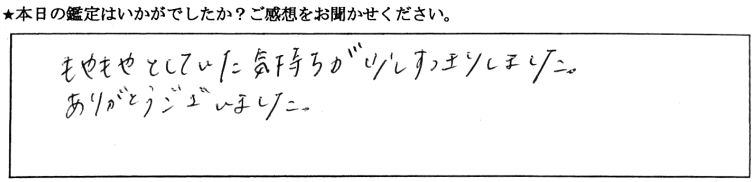 ★本日の鑑定はいかがでしたか？ご感想をお聞かせください。
もやもやとしていた気持ちが少しすっきりしました。
ありがとうございました。